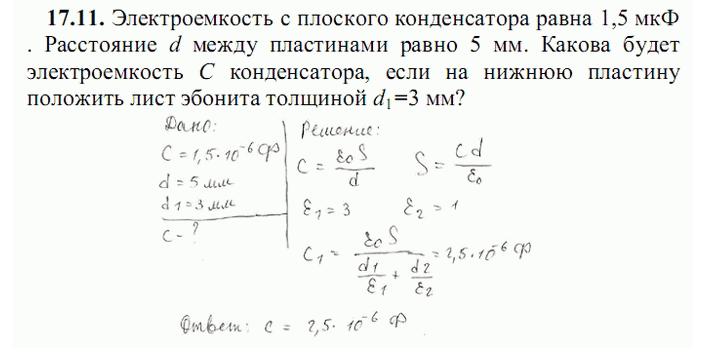 17.11. Электроемкость с плоского конденсатора равна 1,5 мкФ
. Расстояние d между пластинами равно 5 мм. Какова будет
электроемкость C конденсатора, если на нижнюю пластину
положить лист эбонита толщиной d₁=3 мм?
Дано:
C = 1,5·10⁻⁶ Ф
d = 5 мм
d1 = 3 мм
C - ?
Решение:
C = ε₀S/d S = Cd/ε₀
ε₁ = 3 ε₂ = 1
C₁ = ε₀S/(d1/ε₁ + d2/ε₂) = 2,5·10⁻⁶ Ф
Ответ: C = 2,5·10⁻⁶ Ф.